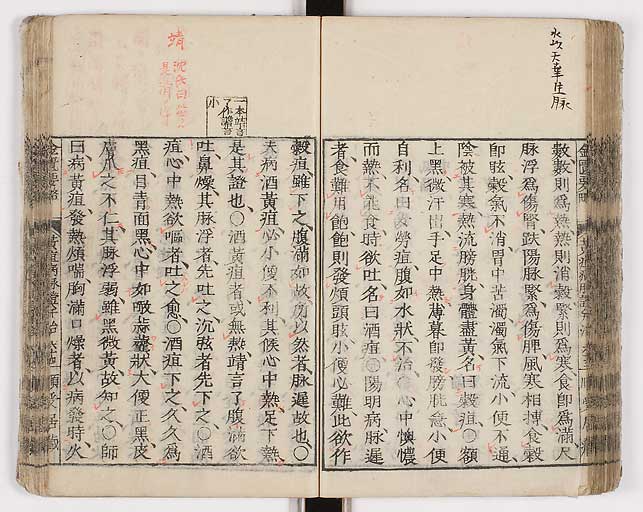 數數則爲熱熱則消穀緊則爲寒食即爲滿尺
脉浮爲傷腎趺陽脉緊爲傷脾風寒相搏食穀
即眩穀氣不消胃中苦濁濁氣下流小便不通
陰被其寒熱流膀胱身體盡黃名曰穀疸〇額
上黑微汗出手足中熱薄暮即發膀胱急小便
自利名曰女勞疸腹如水狀不治〇心中懊憹
而熱不能食時欲吐名曰酒疸〇陽明病脉遲
者食難用飽飽則發煩頭眩小便必難此欲作
穀疸雖下之腹滿如故所以然者脉遲故也〇
夫病酒黃疸必小便不利其候心中熱足下熱
是其證也〇酒黃疸者或無熱靖言了腹滿欲
吐鼻燥其脉浮者先吐之沉弦者先下之〇酒
疸心中熱欲嘔者吐之愈〇酒疸下之久久爲
黑疸目青面黑心中如噉蒜虀狀大便正黑皮
膚爪之不仁其脉浮弱雖黑微黃故知之〇師
曰病黃疸發熱煩喘胸滿口燥者以病發時火
小
靖